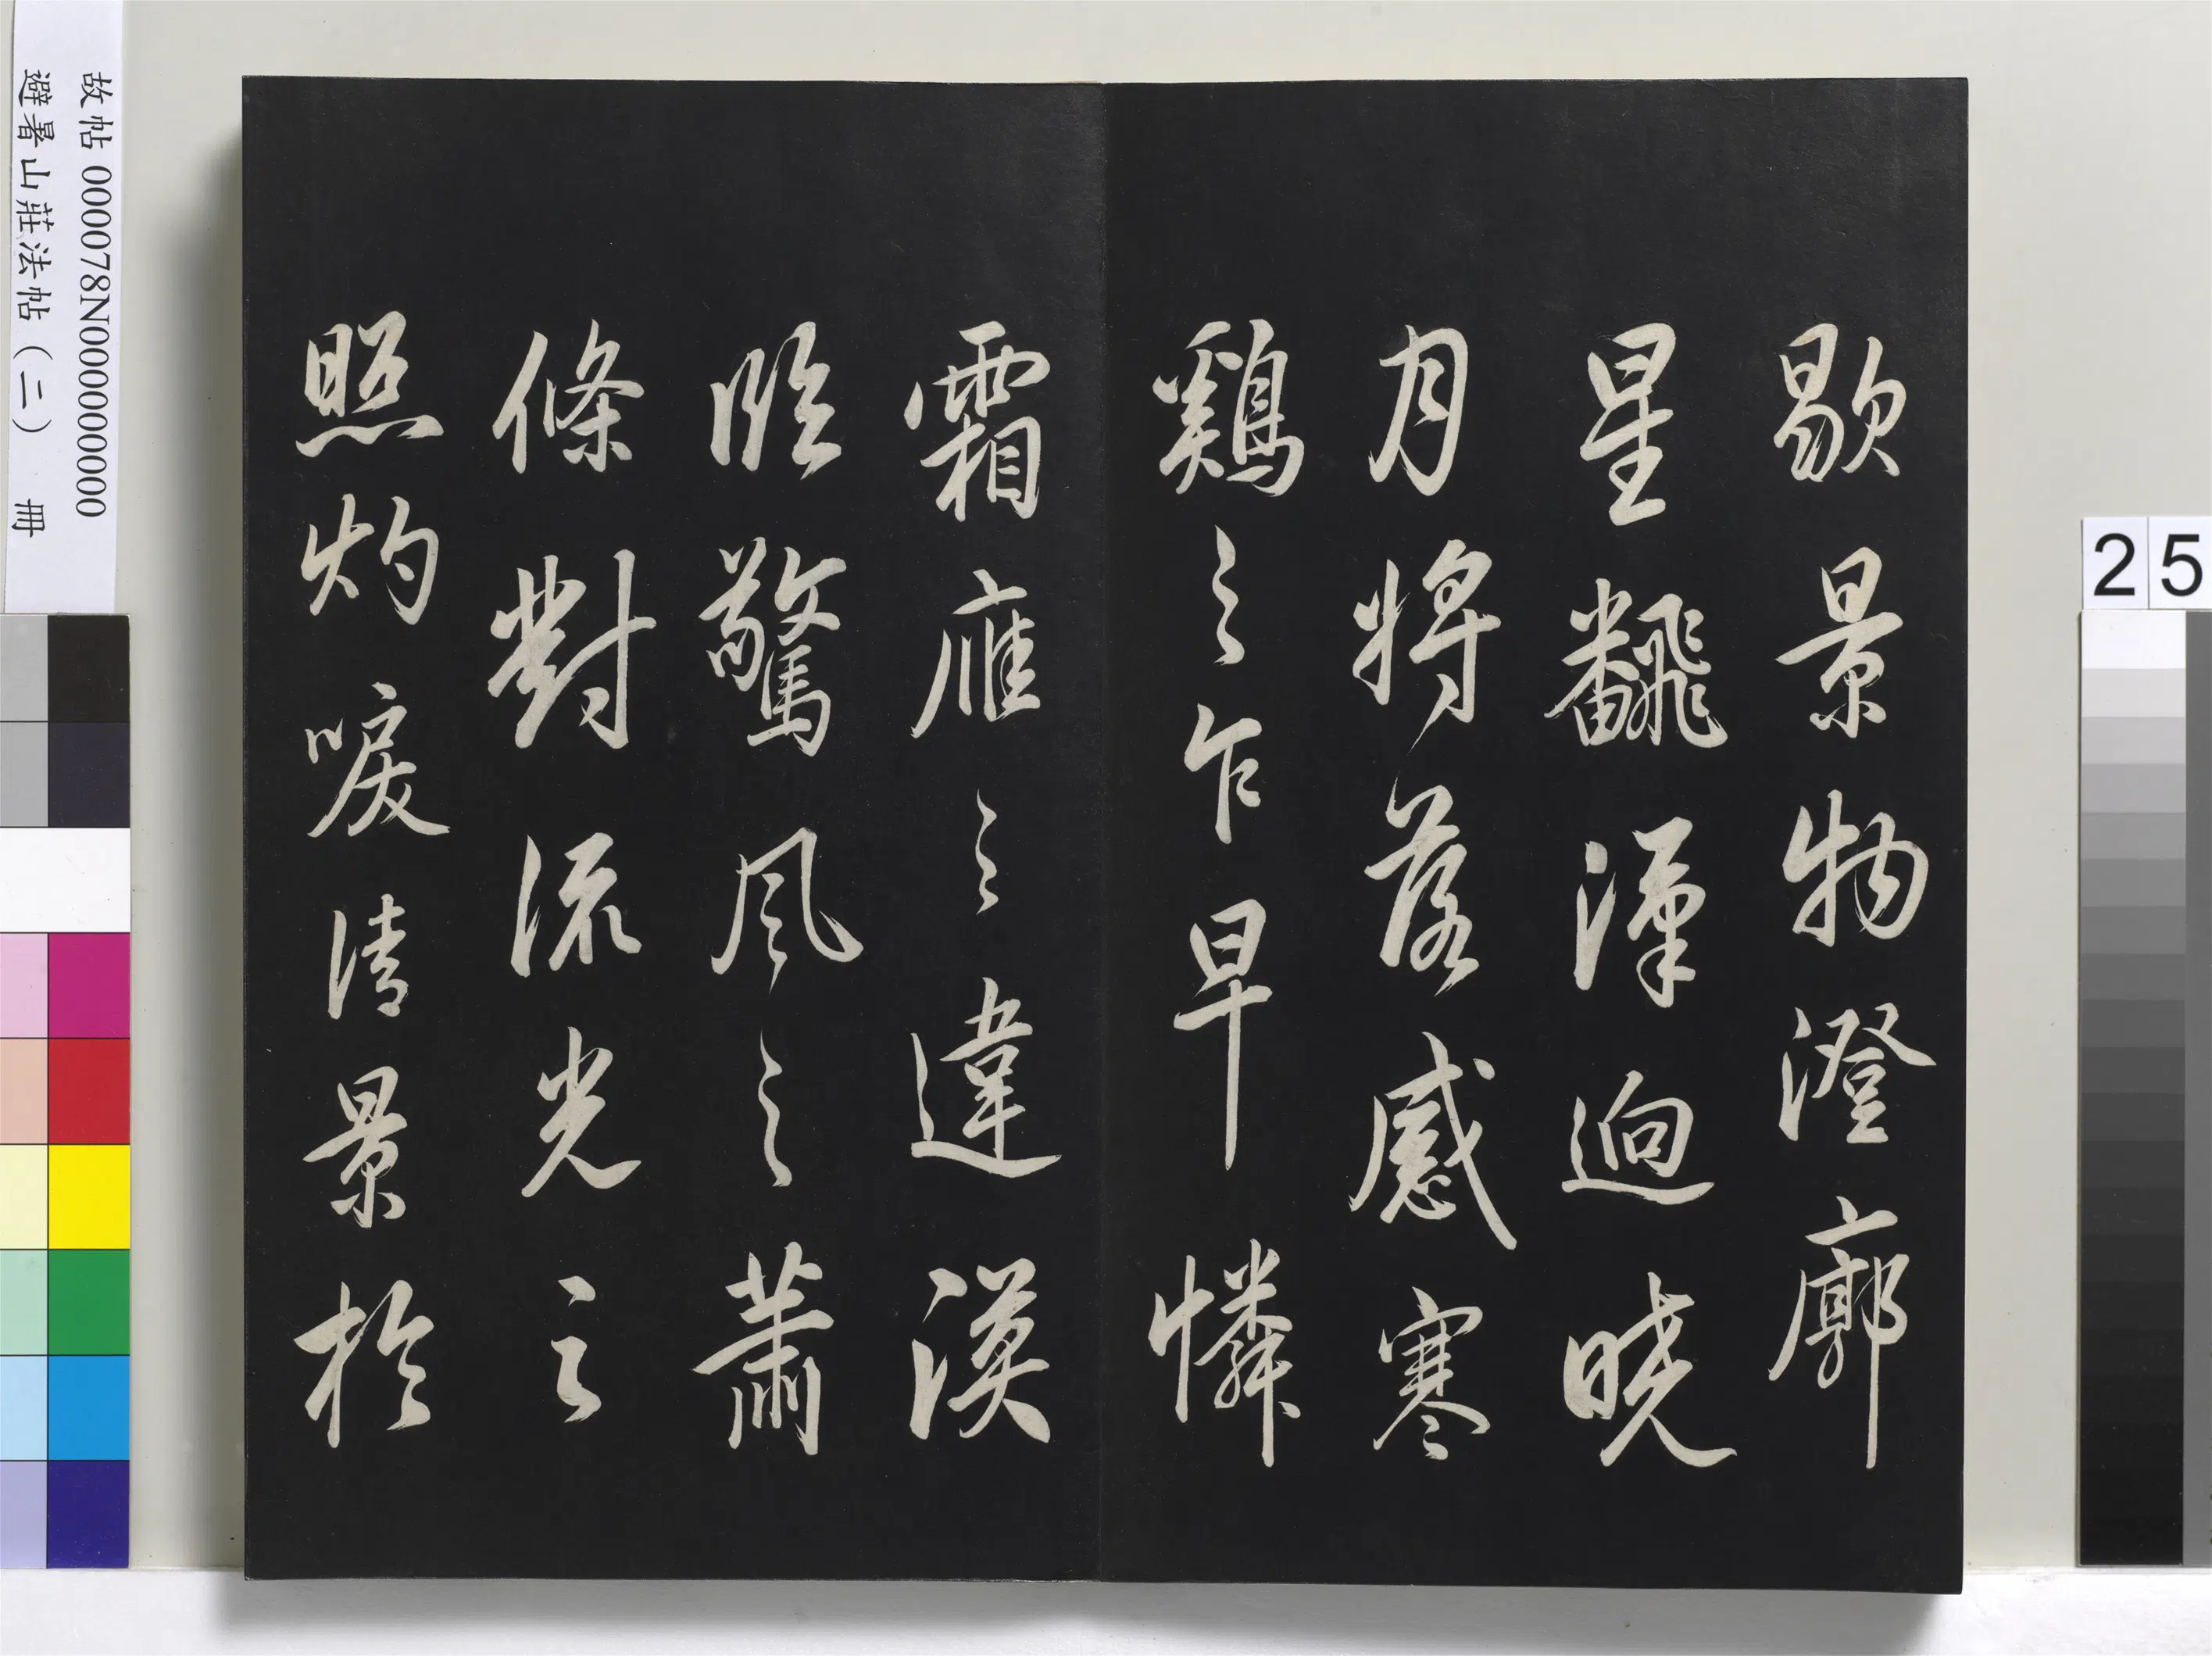 歇景物澄廓
星飜漢逈曉
月將落感寒
鷄之乍早憐
霜雁之違漠
臨驚風之蕭
條對流光之
照灼唳清景於
故帖 000078N000000000
避暑山莊法帖（二） 冊
25